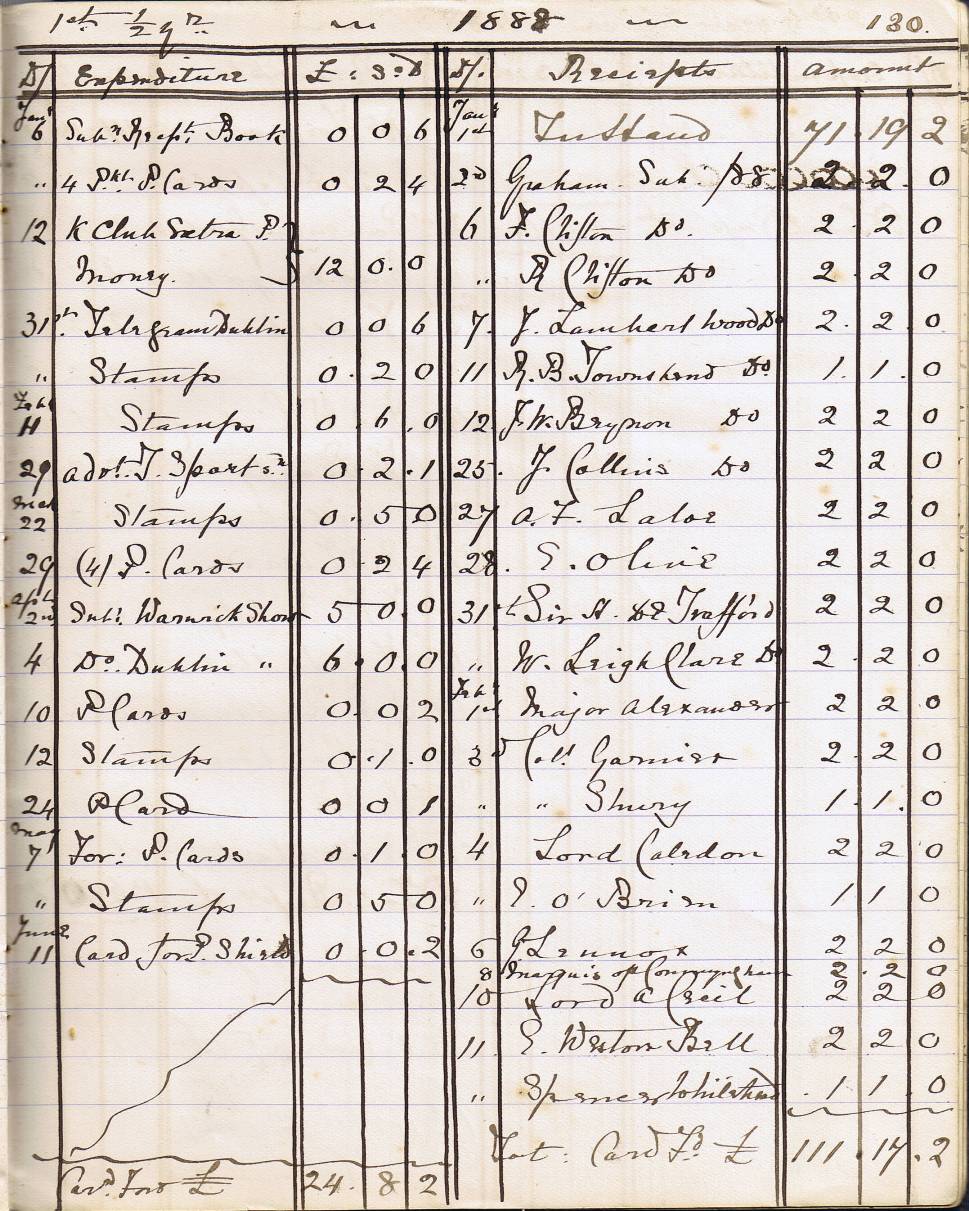 1st ½ yr. 1888 130.
D/ Expenditure £ : S : D D/. Receipts Amount
Jany 6 Subn Recpt. Book 0 0 6 Jany 1st In Hand 71 . 19 2
" 4 Pkt. P. Cards 0 2 4 2d Graham. Sub. /88 2 . 2 . 0
12 K Club Extra P. 6 F. Clifton Do. 2 . 2 0
Money. 12 0 . 0 " R Clifton Do 2 . 2 0
31st. Telegram Dublin 0 0 6 7. J. Lambert Wood Do 2 . 2 . 0
" Stamps 0 . 2 0 11 R. B. Townshend Do 1 . 1 . 0
Feby 11 Stamps 0 . 6 . 0 12 J. W. Beynon Do 2 2 0
29 Advt. I. Sports.n 0 . 2 . 1 25. J. Collins Do 2 2 0
Mch 22 Stamps 0 . 5 0 27 A. F. Laloe 2 2 0
29 (4) P. Cards 0 . 2 4 28. E. Olive 2 2 0
Apl 2nd Subt. Warwick Show 5 0 . 0 31st Sir H. De Trafford 2 2 0
4 Do. Dublin " 6 . 0 . 0 " W. Leigh Clare Do 2 . 2 0
10 P Cards 0 . 0 2 Feby 1st Major Alexander 2 2 0
12 Stamps 0 . 1 . 0 3d Coll. Garnier 2 . 2 0
24 P Card 0 0 1 " " Shury 1 . 1 . 0
May 7 For: P. Cards 0 . 1 . 0 4 Lord Caledon 2 2 0
" Stamps 0 5 0 " E. O'Brien 1 1 0
June 11 Card for P. Shield 0 . 0 . 2 6 G Lennox 2 2 0
8 Marquis of Conyngham 2 . 2 0
10 Lord A Cecil 2 2 0
11. E. Weston Bell 2 2 0
" Spencer 1 1 . 0
Tot : Card Fd £ 111 . 17 . 2
Card. Ford £ 24 . 8 2